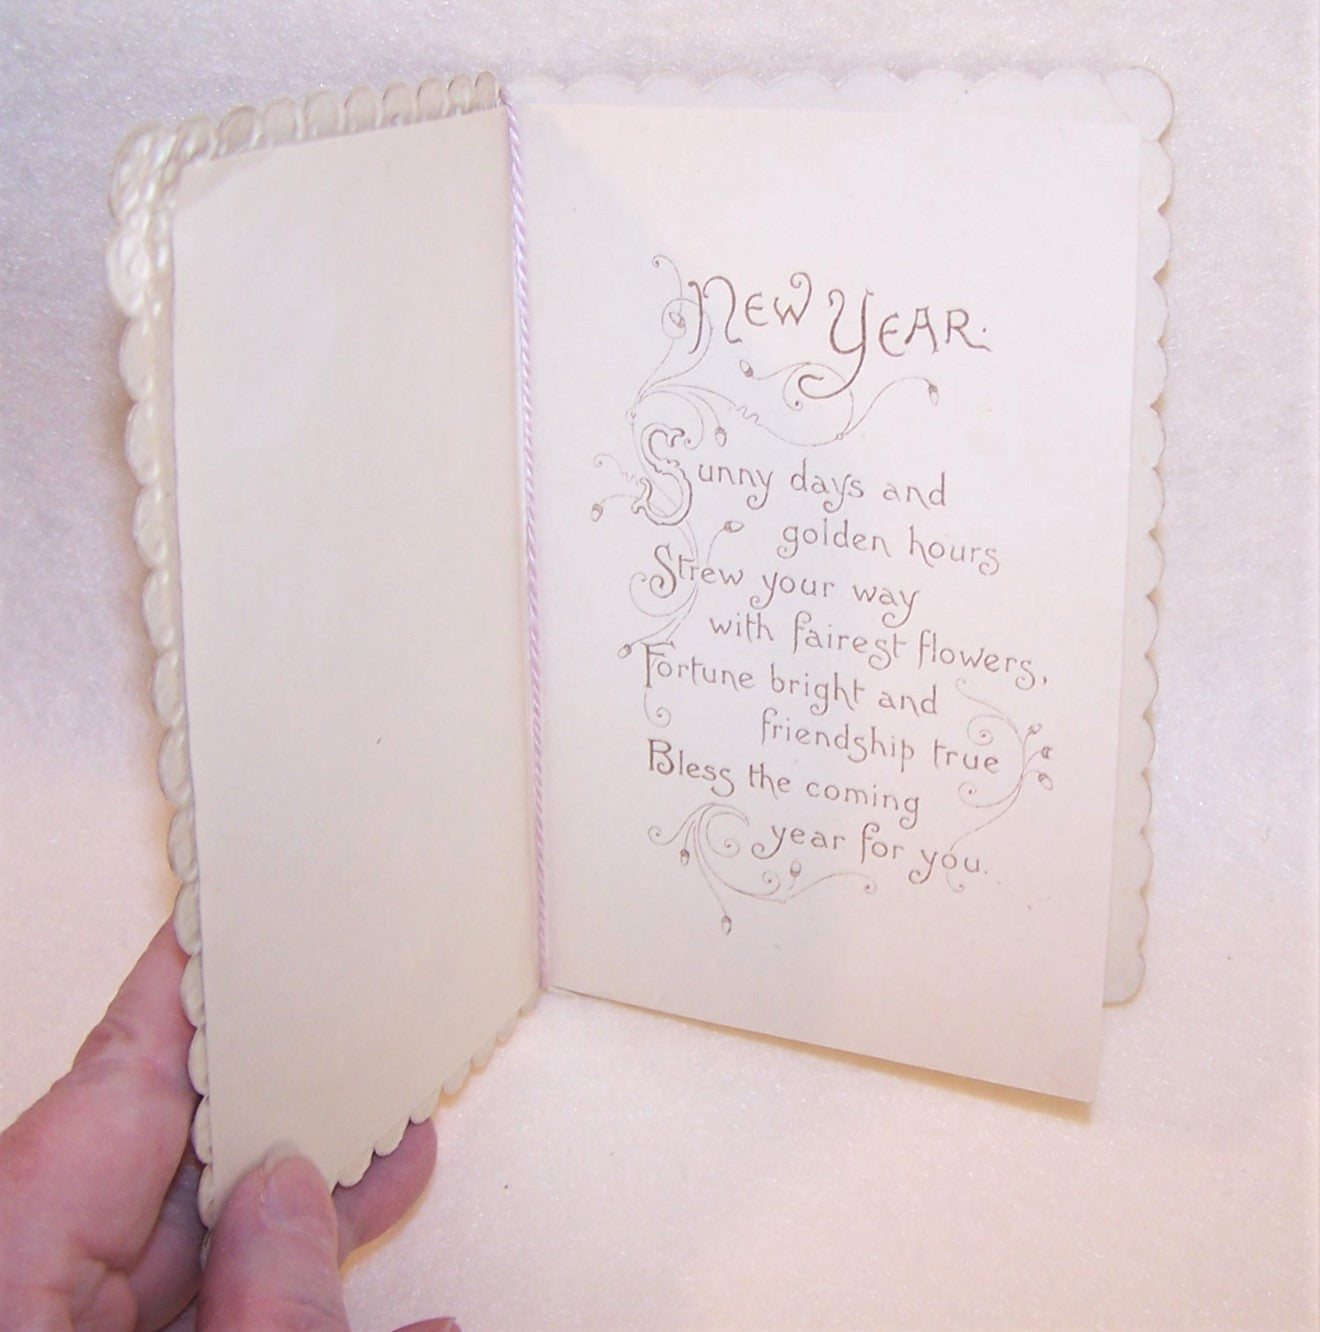 NEW YEAR.
Sunny days and
golden hours
Strew your way
with fairest flowers,
Fortune bright and
friendship true
Bless the coming
year for you.